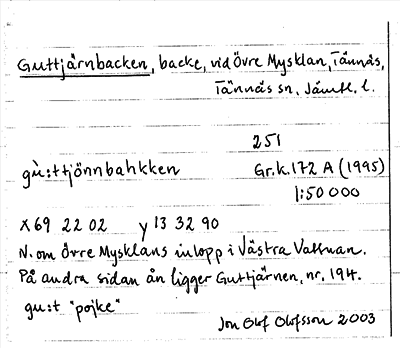 Guttjärnbacken, backe, vid Övre Mysklan, Tännäs,
Tännäs sn, Jämtl. l.
251
gù:ttjönnbahkken Gr.k.172 A (1995)
1:50 000
x 69 22 02 y 13 32 90
N. om Övre Mysklans inlopp i Västra Vallman.
På andra sidan ån ligger Guttjärnen, nr, 194.
gu:t "pojke"
Jon Olof Olofsson 2003